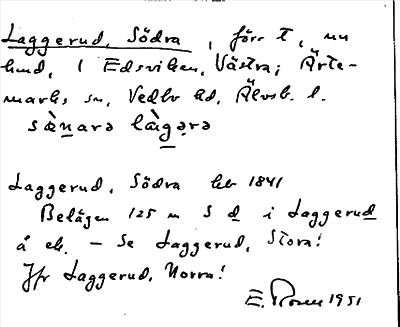 Laggerud, Södra, förr t, nu
hmd, i Edsviken, Västra; Ärte-
marks sn, Vedbo hd, Älvsb. l.
sæ̀narə làgərə
Laggerud, Södra hb 1841
Belägen 125 m S d i Laggerud
å ek. – Se Laggerud, Stora!
Jfr Laggerud, Norra!
E. Rosen 1951